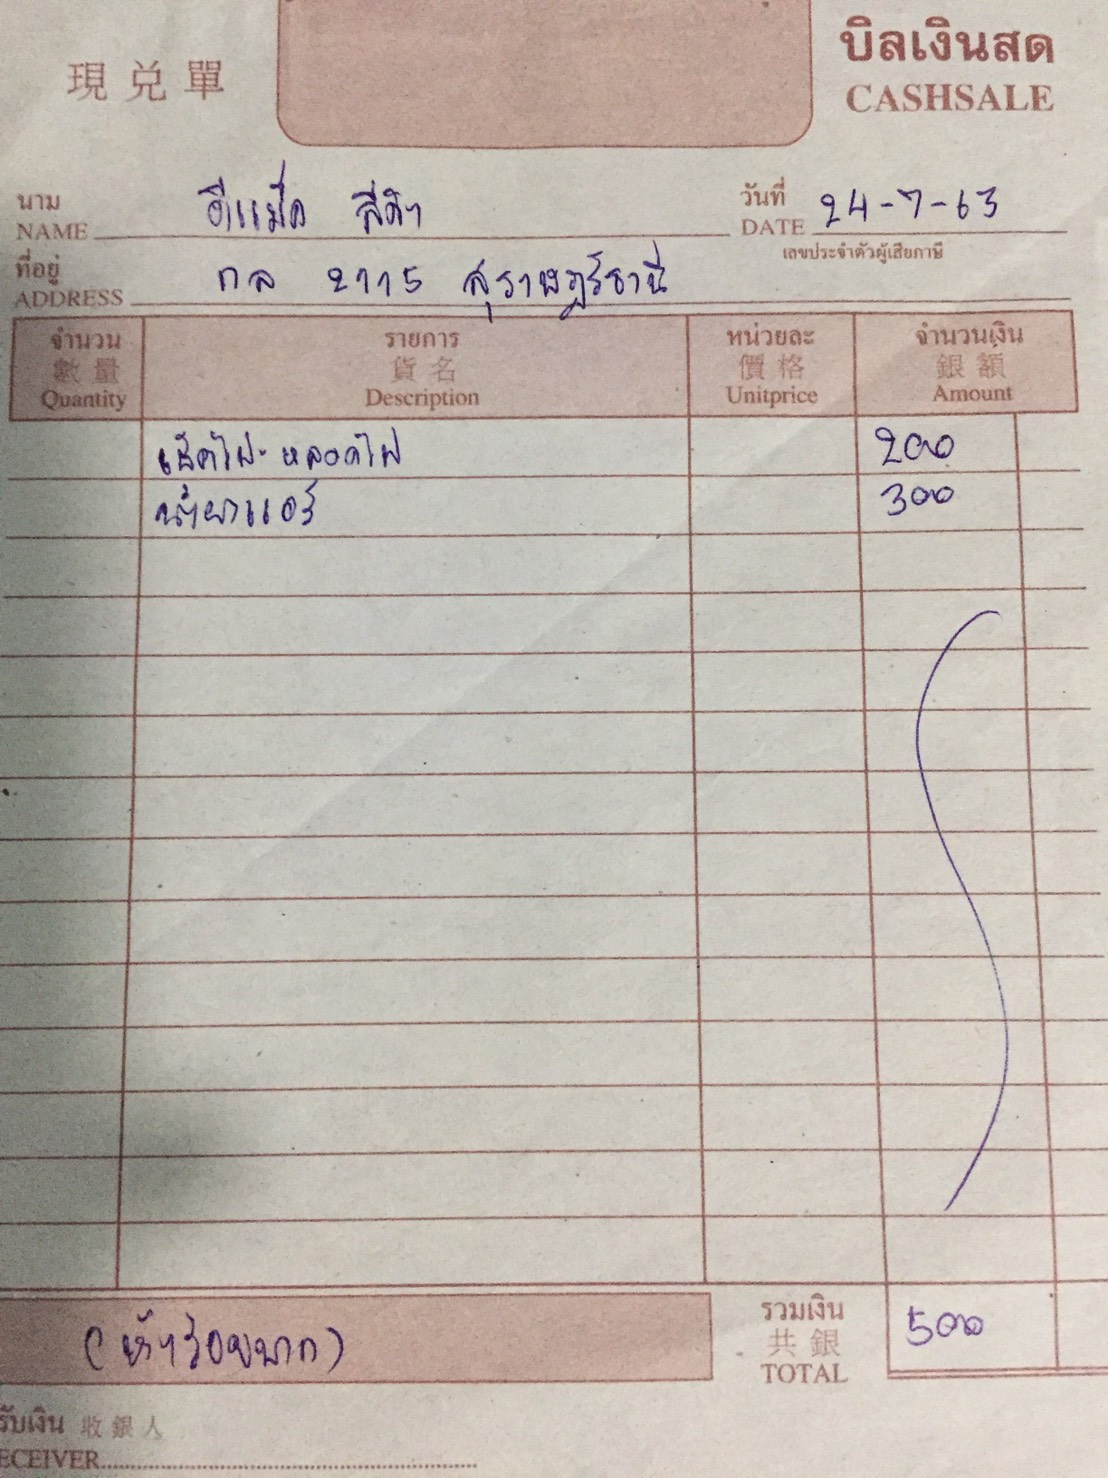 現兑單
บิลเงินสด
CASHSALE
นาม
NAME อีแม็ค สีดำ
วันที่
DATE 24-7-63
เลขประจำตัวผู้เสียภาษี
ที่อยู่
ADDRESS กล 2775 สุราษฎร์ธานี
จำนวน รายการ หน่วยละ จำนวนเงิน
數量 貨名 價格 銀額
Quantity Description Unitprice Amount
เช็คไฟ-หลอดไฟ 200
น้ำยาแอร์ 300
(ห้าร้อยบาท)
รวมเงิน
共銀
TOTAL 500
รับเงิน 收銀人
ECEIVER